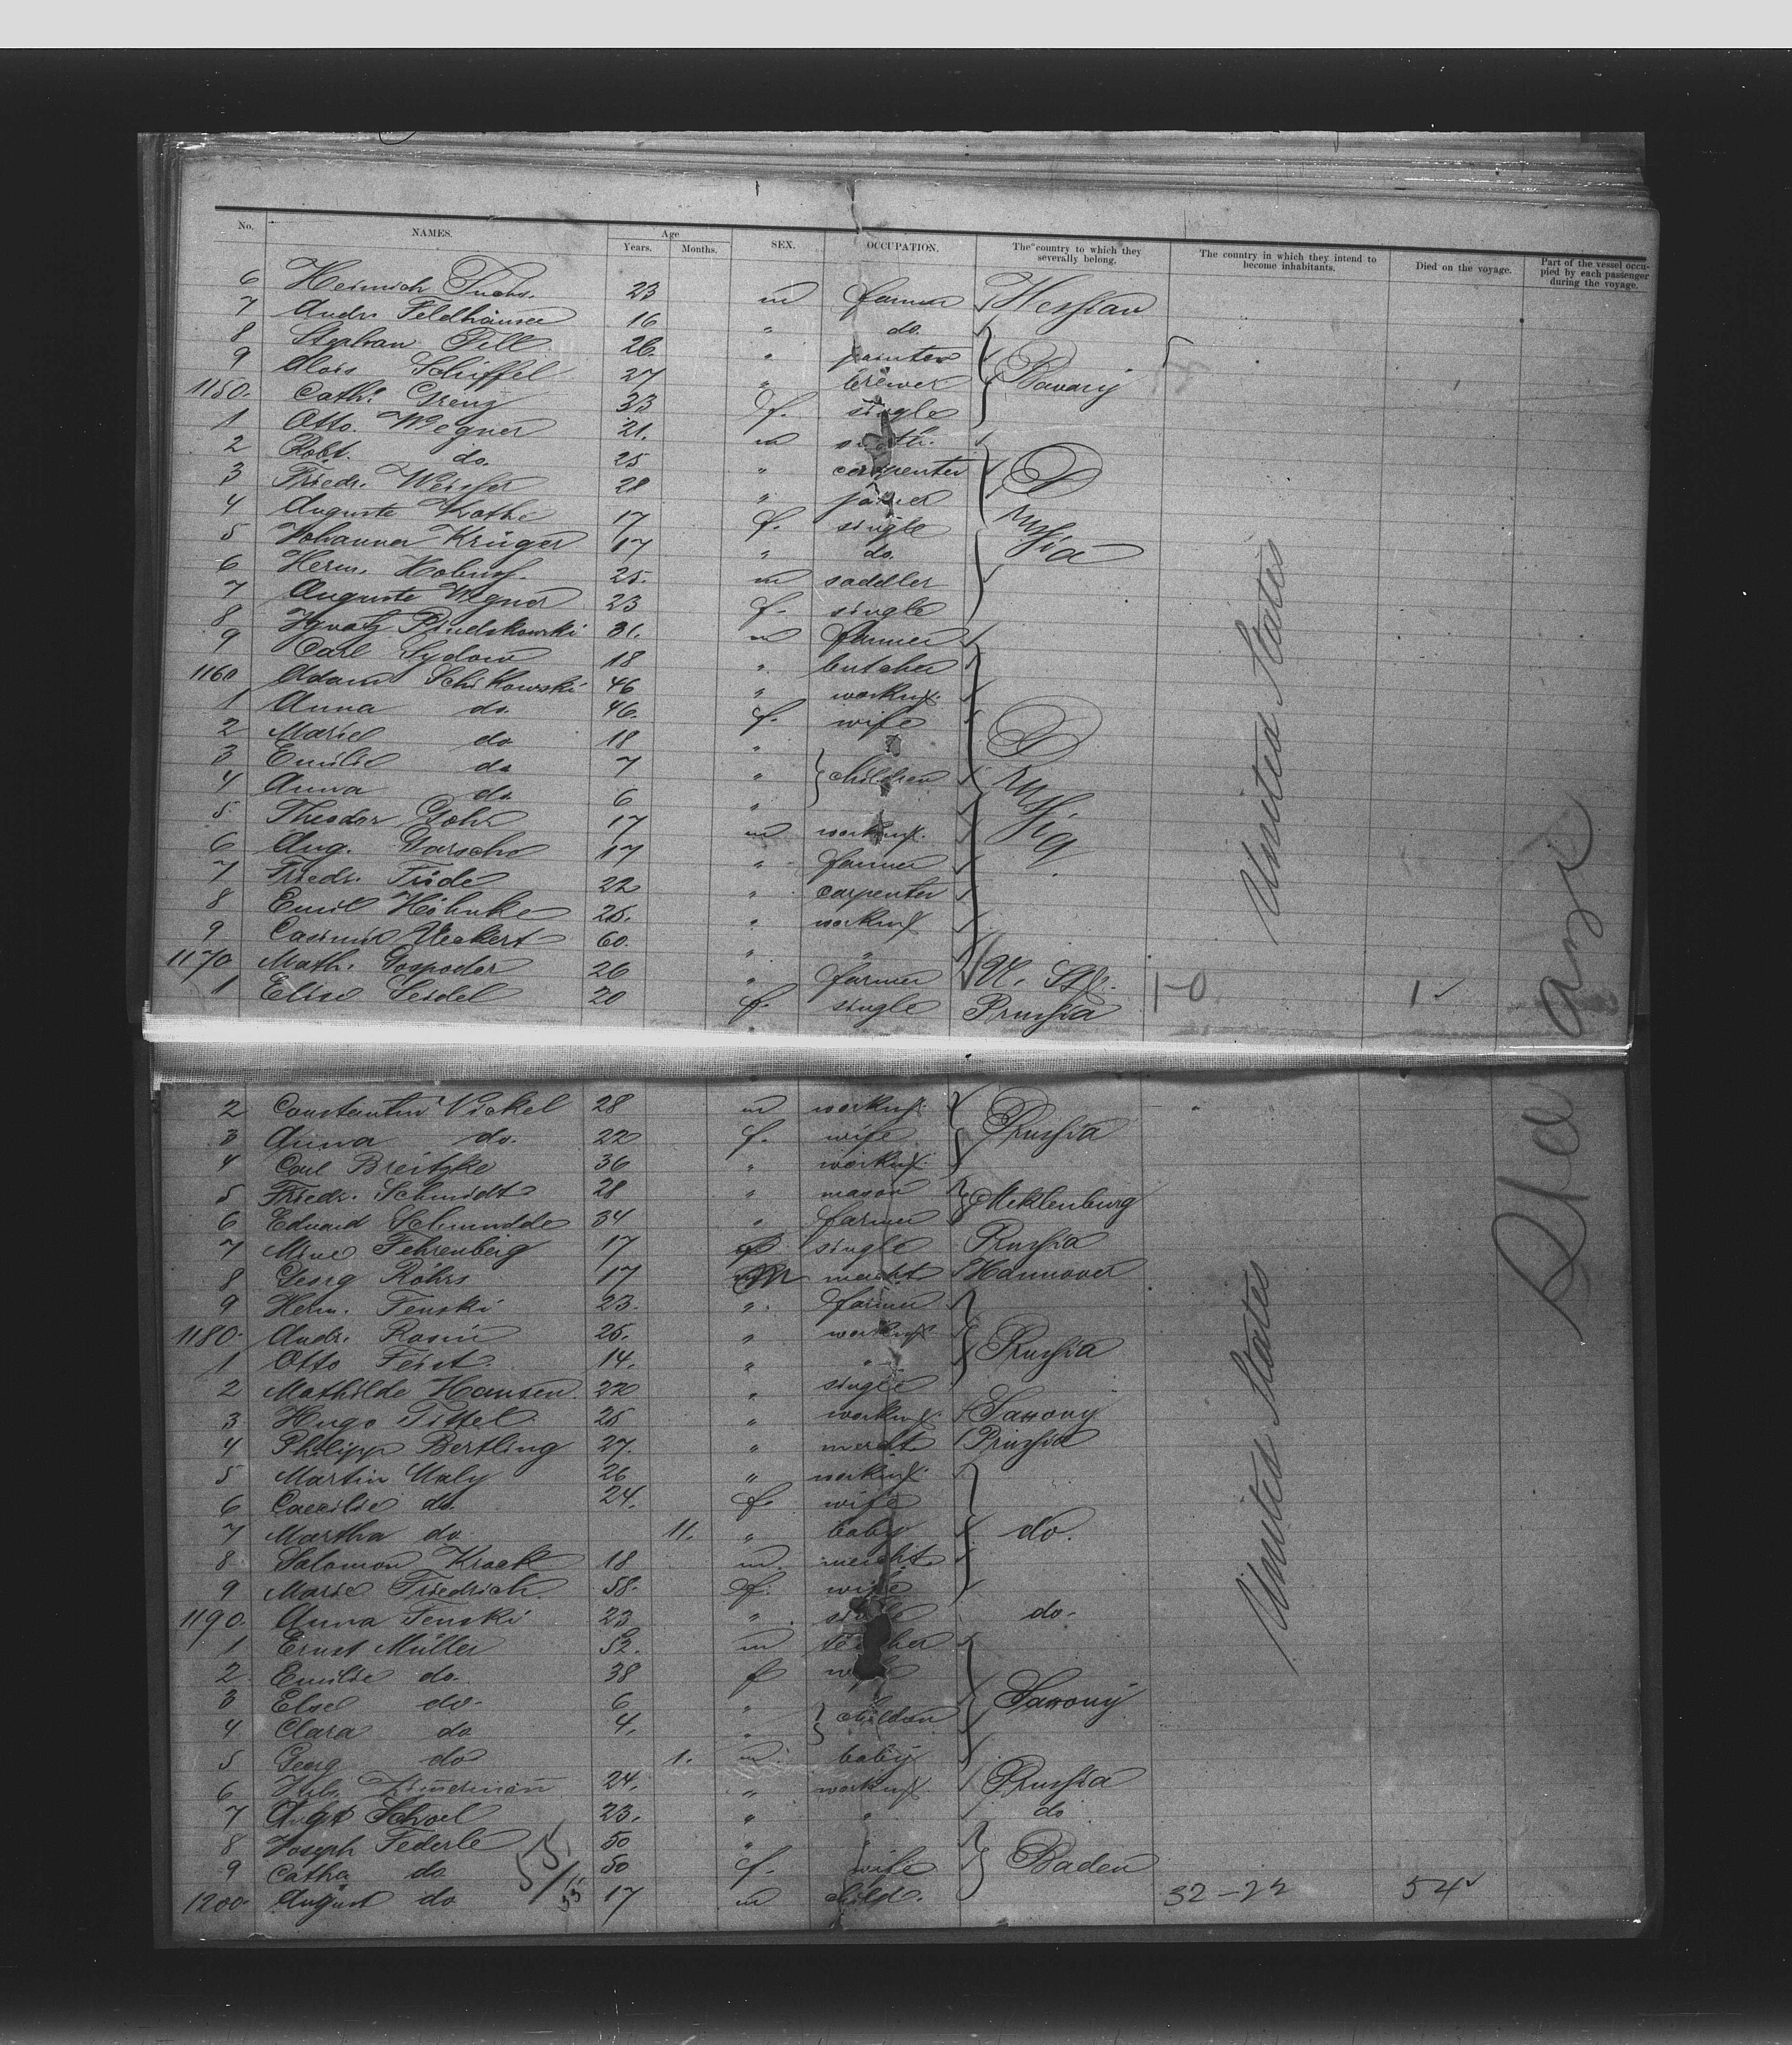 No. NAMES. Age Years. Months. SEX. OCCUPATION. The country to which they severally belong. The country in which they intend to become inhabitants. Died on the voyage. Part of the vessel occupied by each passenger during the voyage.
6 Heinrich Fuchs. 23 m farmer Hessian
7 Andr. Feldhäuser 16 " do.
8 Stephan Fell 26 " painter Bavary
9 Alois Schiffel 27 " brewer
1150. Cath. Grenz 33 f. single
1 Otto Wegner 21. m
2 Robt. do. 25 " carpenter Prussia
3 Friedr. Weisser 28 " joiner
4 Auguste Kothe 17 f. single
5 Johanna Krüger 17 " do.
6 Herm. 25. m saddler
7 Auguste Wegner 23 f. single
8 Ignatz 31. m farmer
9 Carl Sydow 18 " butcher
1160 Adam Schikowski 46 " workm.
1 Anna do. 46. f. wife
2 Marie do 18 "
3 Emilie do 7 " children Prussia
4 Anna do. 6 "
5. Theodor Gohr 17 m workm.
6 Aug. Darsche 17 " farmer
7 Friedr. Tride 22 " carpenter
8 Emil Höhnke 25. " workm
9 Casimir Ueckert 60. " "
1170 Math. Gospodar 26 " farmer U. St. 1-0 1
1 Elise Seidel 20 f. single Prussia
United States
2 Constantin Nickel 28 m workm. Prussia
3 Anna do. 22 f. wife
4 Carl Breitzke 36 " workm.
5 Friedr. Schmidt 28 " mason Meklenburg
6 Eduard Schmidde 34 " farmer
7 Mine Fehrenberg 17 f single Prussia
8 Georg Röhrs 17 m mercht Hannover
9 Herm. Fenski 23. " farmer
1180. Andr. Rosin 25. " workm Prussia
1 Otto Feist. 14. " "
2 Mathilde Hansen 22 " single
3 Hugo Tittel 25 " workm. Saxony
4 Philipp Bertling 27. " mercht Prussia
5 Martin Maly 26 " workm.
6 Caecilie do. 24. f. wife
7 Martha do 11. " baby do.
8 Salomon Kraek 18 m. mercht
9 Marie Friedrich. 58. f. wife
1190. Anna Fenski 23 " single do.
1 Ernst Müller 52. m teacher
2 Emilie do. 38 f wife
3 Else do. 6 " children Saxony
4 Clara do 4. "
5 Georg do 1. m baby
6 Zimermann 24. " workm. Prussia
7 Augt Schoel 23. " " do
8 Joseph Federle 50 " " Baden
9 Catha do 50 f. wife
1200. August do 17 m child. 32-22 54
United States